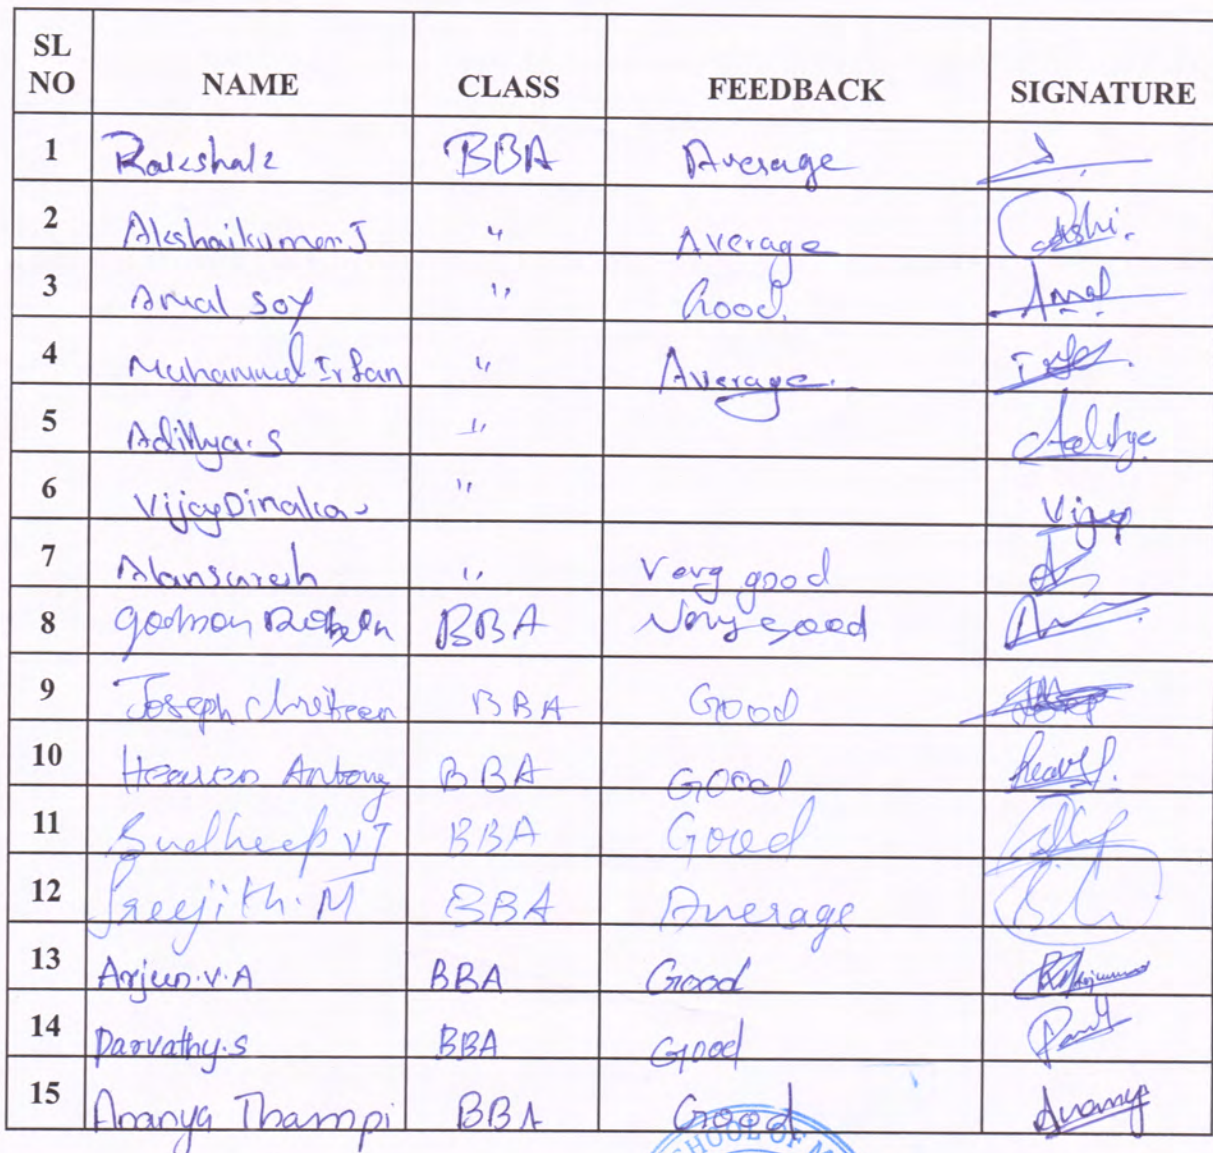 SL NO NAME CLASS FEEDBACK SIGNATURE
1 BBA Average
2 Akshaikumar J " Average Akshi.
3 Amal soy " Good. Amal
4 Muhammed Irfan " Average.
5 Adithya.S " Adithya
6 Vijay Dinakar " Vijay
7 Alansuresh " Very good
8 BBA Very good
9 Joseph BBA Good
10 Heaven Antony BBA Good
11 Sudheep VJ BBA Good
12 Sreejith.M BBA Average
13 Arjun.V.A BBA Good
14 Parvathy.S BBA Good
15 Ananya Thampi BBA Good Ananya
SCHOOL OF M